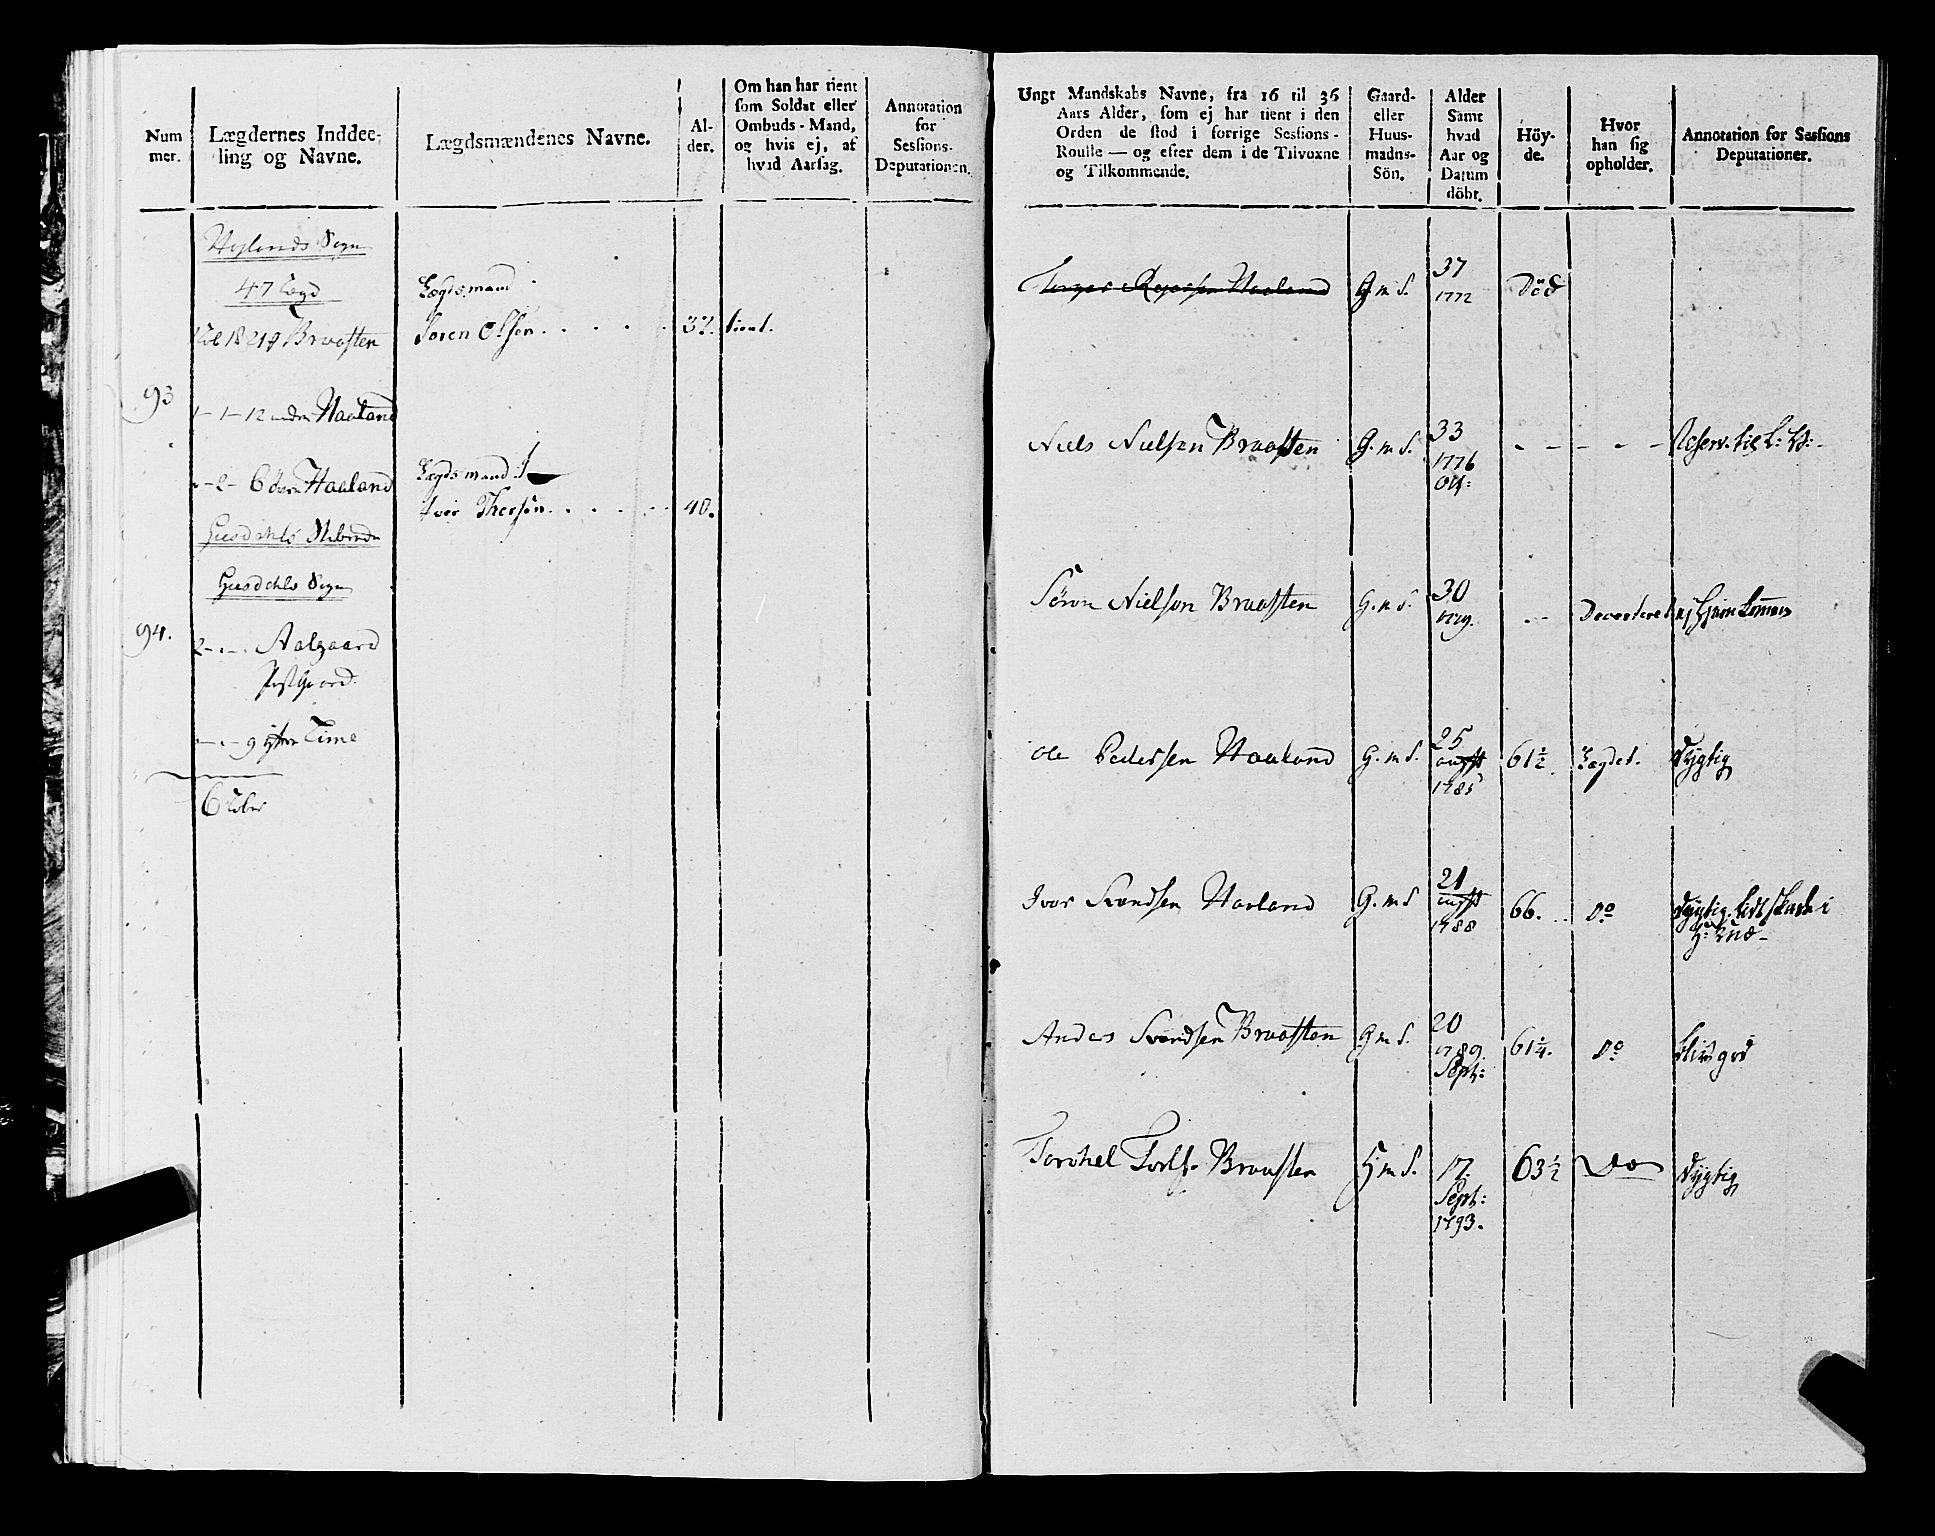 Num
mer.
Lægdernes Inddee-
ling og Navne.
Lægdsmændenes Navne.
Al-
der.
Om han har tient
som Soldat eller
Ombuds-Mand,
og hvis ej, af
hvad Aarsag.
Annotation
for
Sessions-
Deputationen.
Höylands Sogn
47 Lægd
Braasten
Lægdsmand
Soren Olsen . . . . . 37. tient.
93
1-1-12 Haaland
-2-6 Haaland
Lægdsmand
Iver . . . . . 40.
Giesdahls
Giesdahls Sogn
94.
2- - - Aalgaard
9 Time
6
Ungt Mandskabs Navne, fra 16 til 36
Aars Alder, som ej har tient i den
Orden de stod i forrige Sessions-
Roulle — og efter dem i de Tilvoxne
og Tilkommende.
Gaard-
eller
Huus-
madns-
Sön.
Alder
Samt
hvad
Aar og
Datum
döbt.
Höy-
de.
Hvor
han sig
opholder.
Annotation for Sessions
Deputationer.
Haaland G m S. 37
1772
Död
Niels Nielsen Braasten G. m S. 33
1776
- - - - Reserv. til L: V:
Sören Nielsen Braasten G. m S. 30
1779.
- - Deserteret ej hjem kommen
Ole Pedersen Haaland G. m S. 25
1785
61½ Lægdet. Dygtig
Iver Svendsen Haaland G. m S 21
1788
66. Do Dygtig. lidt skade i
H: Knæ -
Anders Svendsen Braasten G m S. 20
1789.
Sept:
61¼. Do bliver god
Torchel Torks. Braasten H m S. 17.
Sept:
1793.
63½ Do Dygtig